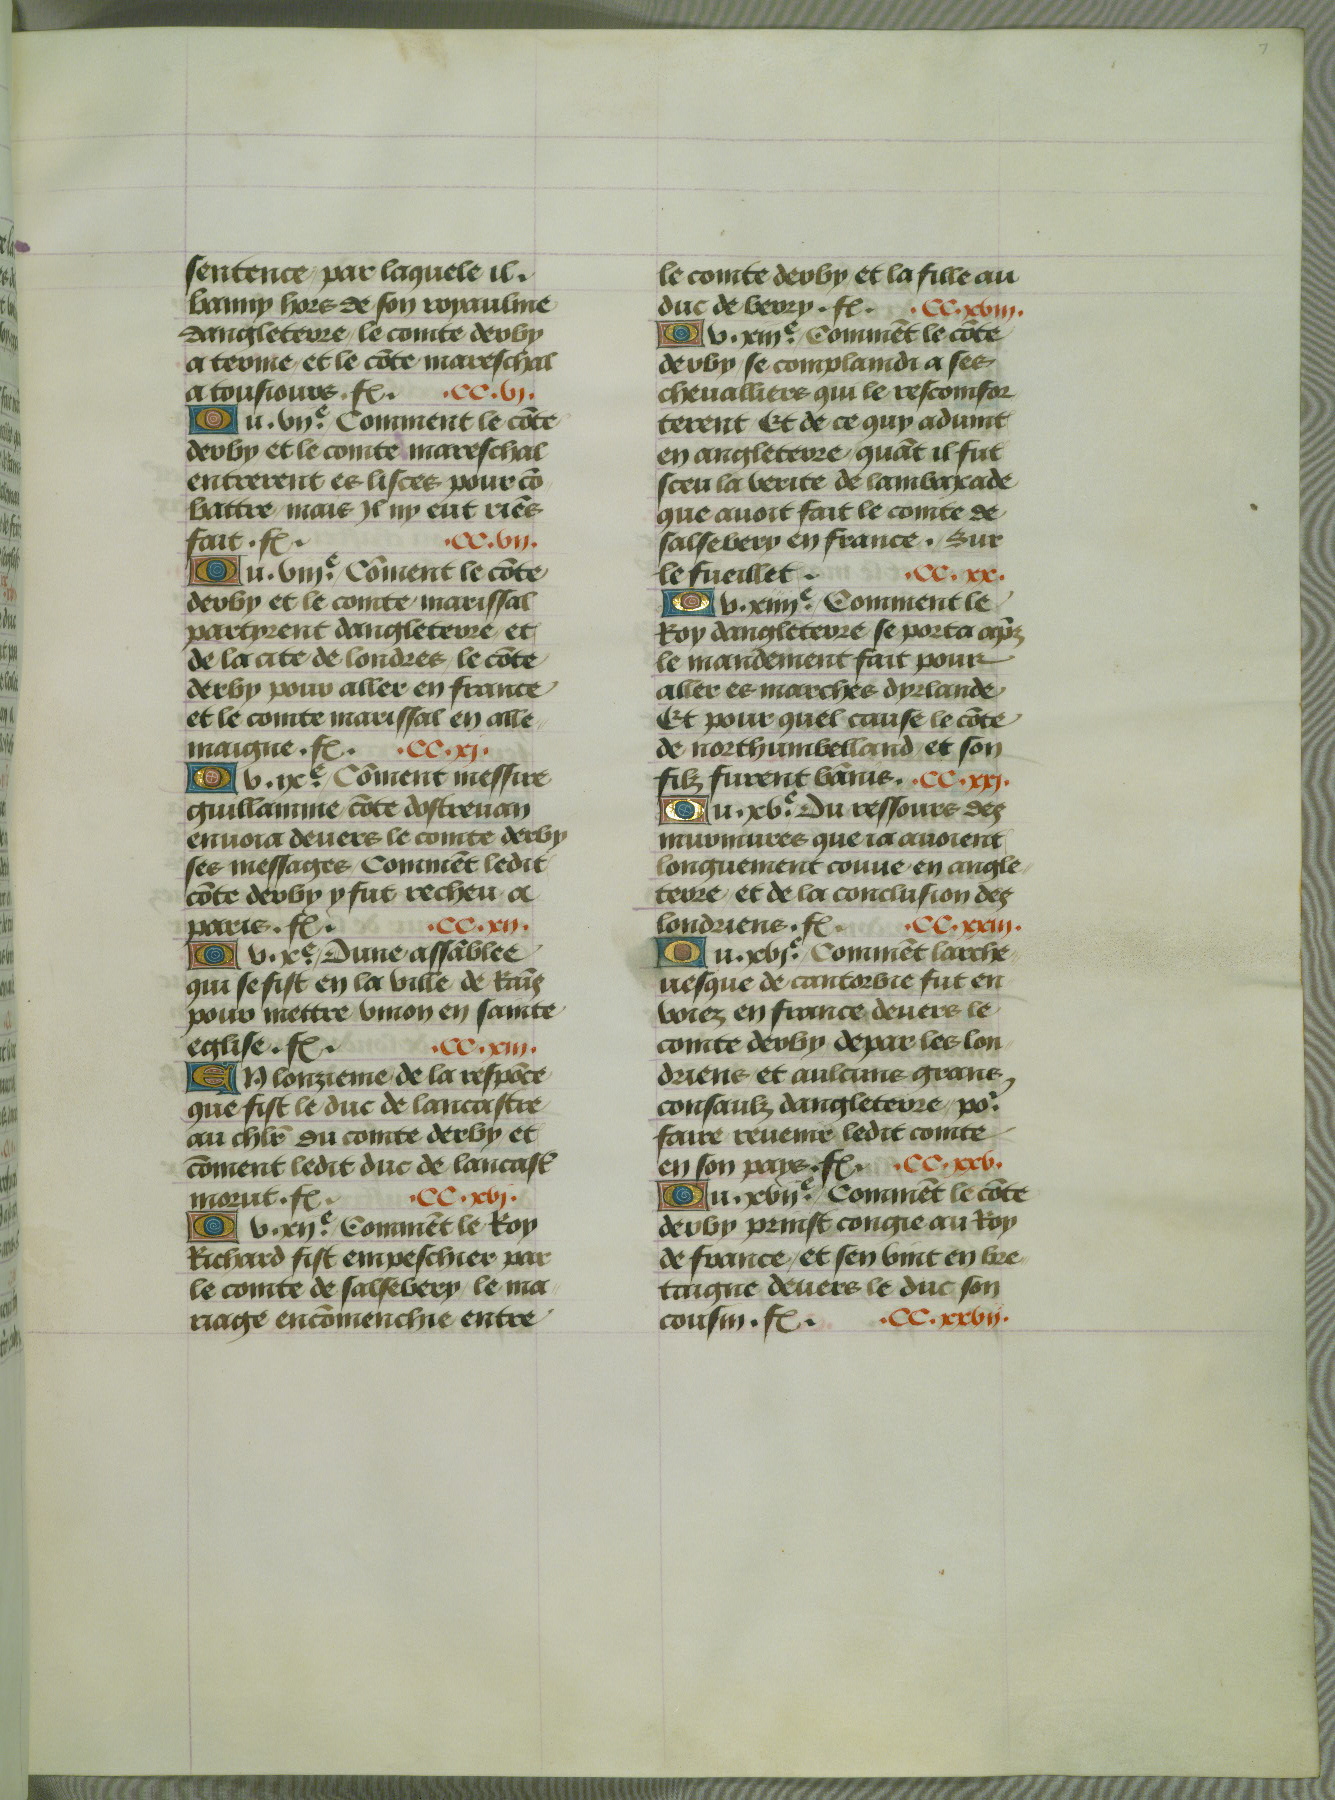 7
sentence par laquele il.
banny hors de son royaulme
dangleterre le comte derby
a terme et le cōte mareschal
a tousiours. fẽ. .CC.vj.
Du. vijᵉ. Comment le cōte
derby et le comte mareschal
entrerent es lisces pour cō
battre mais Jl ny eut riēs
fait. fẽ. .CC.vij.
Du. viijᵉ. Cōment le cōte
derby et le comte marissal
partyrent dangleterre et
de la cite de londres le cōte
derby pour aller en france
et le comte marissal en alle
maigne. fẽ. .CC.xj.
Dv. ixᵉ. Cōment messire
guillamme cōte dostrevan
envoia devers le comte derby
ses messages Commēt ledit
cōte derby y fut recheu a
paris. fẽ. .CC.xij.
Dv. xᵉ. Dune assāblee
qui se fist en la ville de Raīs
pour mettre vnion en sainte
eglise. fẽ. .CC.xiij.
EN lonzieme de la respōce
que fist le duc de lancastre
au chlr̄ du comte derby et
cōment ledit duc de lancast̄
morut. fẽ. .CC.xvj.
Dv. xijᵉ. Commēt le Roy
Richard fist empeschier par
le comte de salsebery le ma
riage encōmenchie entre
le comte derby et la fille au
duc de berry. fẽ. .CC.xviij.
Dv. xiijᵉ. Commēt le cōte
derby se complaindi a ses
chevalliers qui le rescomfor
terent Et de ce quy advint
en angleterre quāt il fut
sceu la verite de lambaxade
que avoit fait le comte de
salsebery en france. Sur
le fueillet. .CC.xx.
Dv. xiiijᵉ. Comment le
Roy dangleterre se porta ap̄z
le mandement fait pour
aller es marches dyrlande
Et pour quel cause le cōte
de northumbelland et son
filz furent bānis. .CC.xxj.
Du. xvᵉ. Du ressours des
murmures que ia avoient
longuement couve en angle
terre et de la conclusion des
londriens. fẽ. .CC.xxiij.
Du. xvjᵉ. Commēt larche
vesque de cantorbie fut en
voiez en france devers le
comte derby depar les lon
driens et aulcuns grans
consaulz dangleterre po
faire revenir ledit comte
en son pays. fẽ. .CC.xxv.
Du. xvijᵉ. Commēt le cōte
derby prinst congie au Roy
de france et sen vint en bre
taigne devers le duc son
cousin. fẽ. .CC.xxvij.